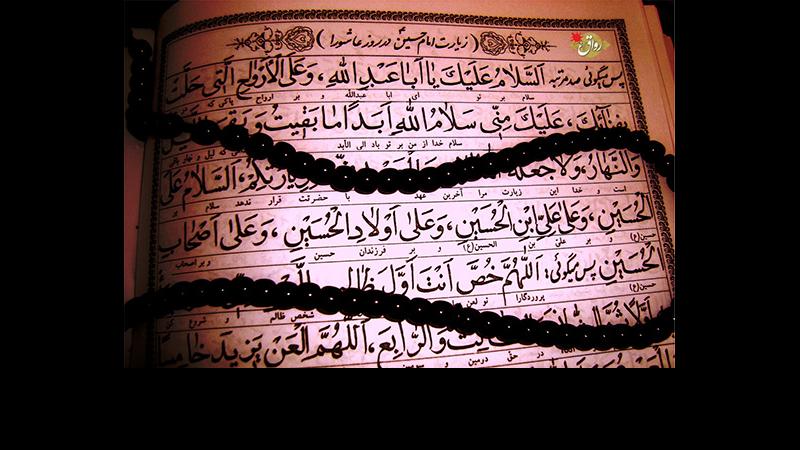 رواق
(زیارت امام حسین در روز عاشورا)
پس میگوئی صد مرتبه اَلسَّلامُ عَلَیْکَ یا اَبا عَبْدِ اللهِ، وَعَلَی الْاَرْواحِ الَّتی حَلَّتْ
سلام بر تو ای ابا عبدالله و بر ارواح پاکی که
بِفِنائِکَ، عَلَیْکَ مِنّی سَلامُ اللهِ اَبَدًا ما بَقیتُ وَبَقِیَ اللَّیْلُ
سلام خدا از من بر تو باد الی الأبد
وَالنَّهارُ، وَلا جَعَلَهُ زِیارَتِکُمْ، اَلسَّلامُ عَلَی
است و خدا این زیارت مرا آخرین عهد با حضرتت قرار ندهد سلام بر
الْحُسَیْنِ، وَعَلی عَلِیِّ ابْنِ الْحُسَیْنِ، وَعَلی اَوْلادِ الْحُسَیْنِ، وَعَلی اَصْحابِ
حسین(ع) و بر علی بن الحسین(ع) و بر فرزندان حسین و بر اصحاب
الْحُسَیْنِ پس میگوئی: اَللّهُمَّ خُصَّ اَنْتَ اَوَّلَ ظالِمٍ
حسین(ع) پروردگارا تو لعن شخص ظالم و شروع کن
اَوَّلًا ثُمَّ
در حق دومین و سومین
وَالرّابِعَ، اَللّهُمَّ الْعَنْ یَزیدَ خامِسًا